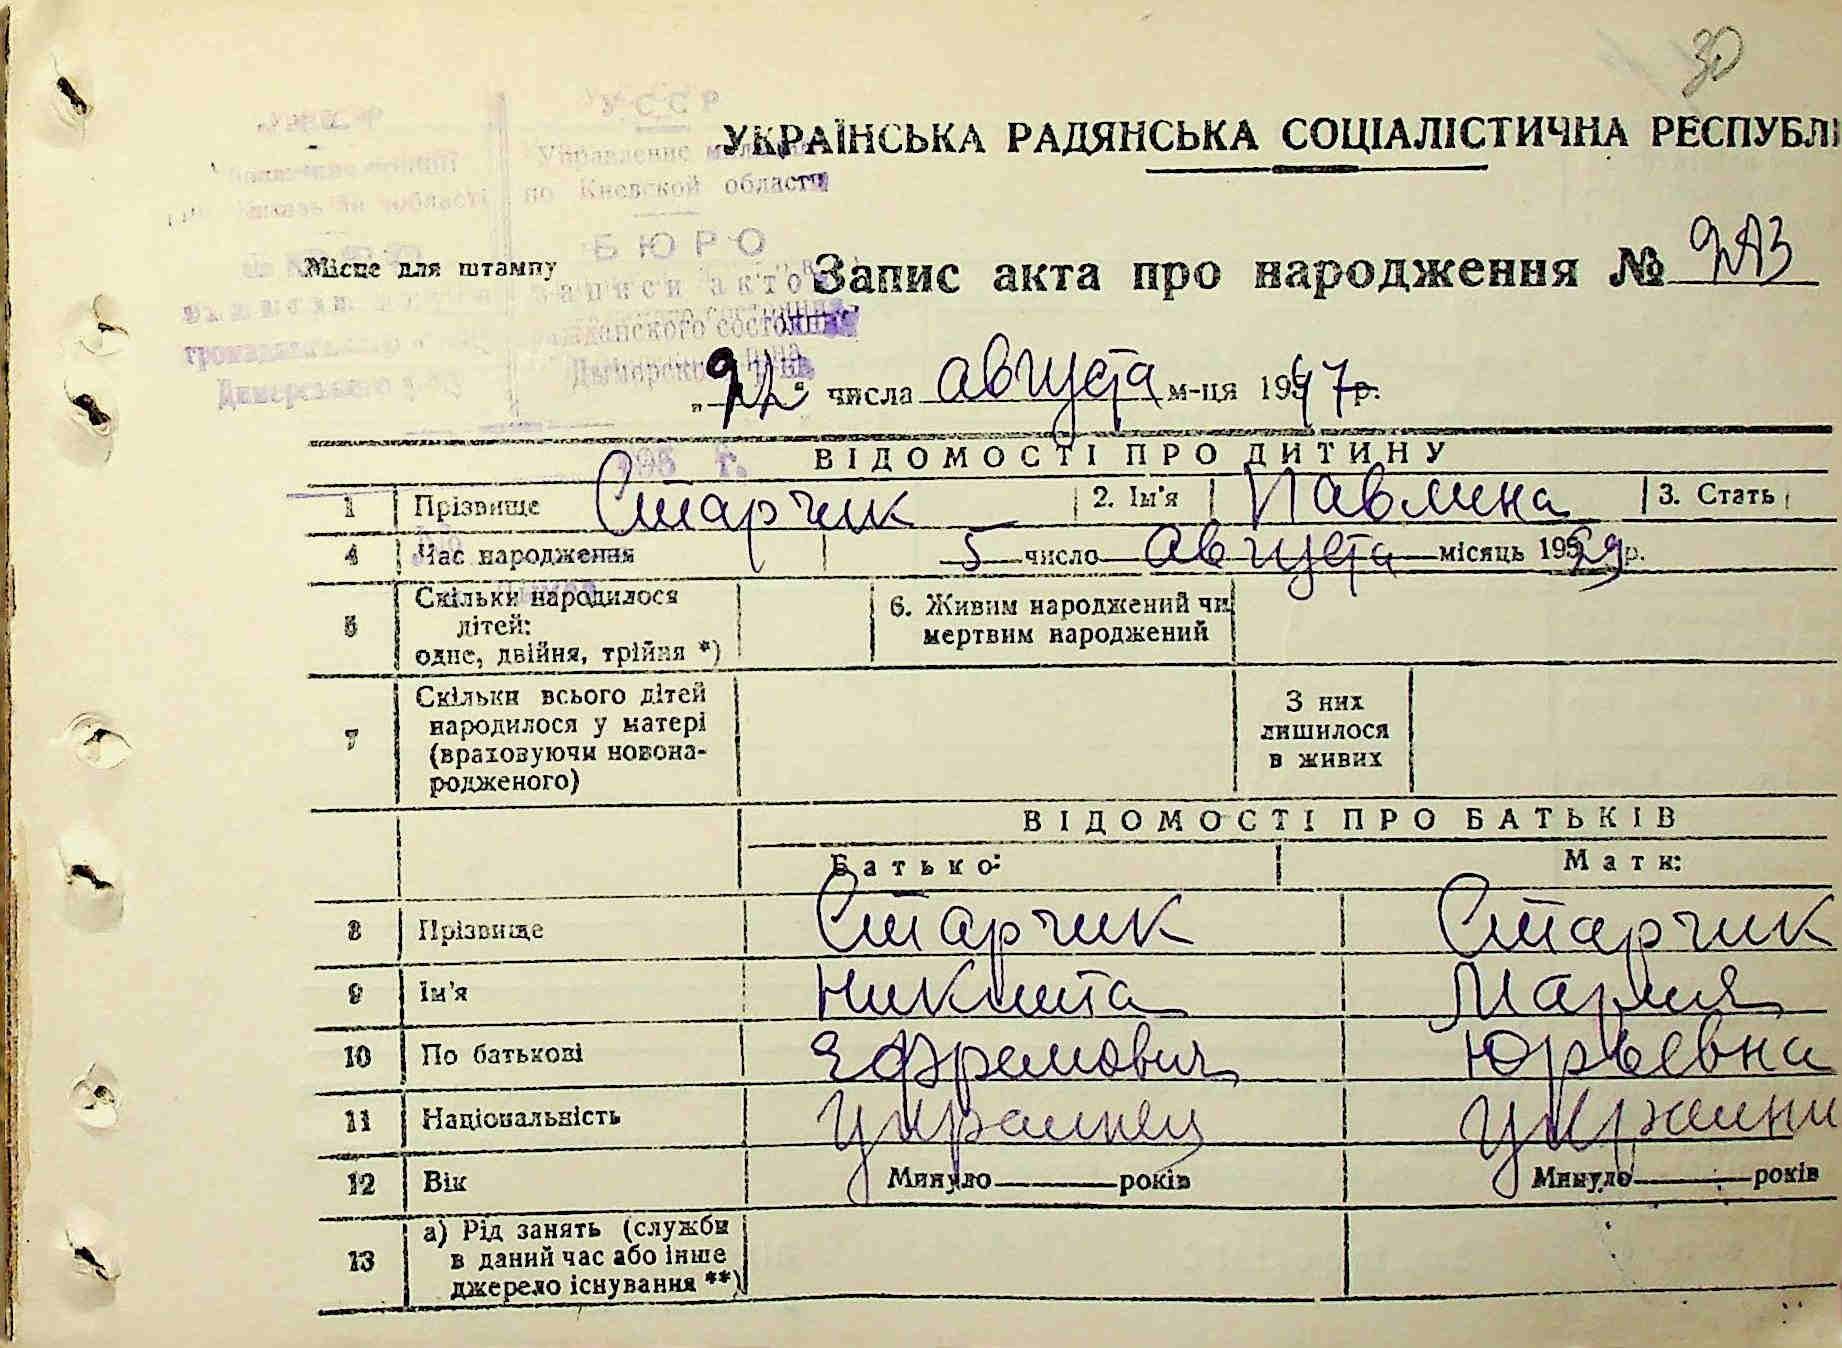 30
УКРАЇНСЬКА РАДЯНСЬКА СОЦІАЛІСТИЧНА РЕСПУБЛІ
УССР
Управление
по Киевской области
БЮРО
Записи актов
гражданского состояния
Дымерского р-на
Димерського
Місце для штампу
Запис акта про народження №
„22“ числа августа м-ця 1947 р.
195 г.
ВІДОМОСТІ ПРО ДИТИНУ
1 Прізвище Старчик 2. Ім'я Павлина 3. Стать
4 Час народження 5 число августа місяць 1929 р.
5 Скільки народилося
літей:
одне, двійня, трійня *)
6. Живим народжений чи
мертвим народжений
7 Скільки всього дітей
народилося у матері
(враховуючи новона-
родженого)
З них
лишилося
в живих
ВІДОМОСТІ ПРО БАТЬКІВ
Батько: Мати:
8 Прізвище Старчик Старчик
9 Ім'я Никита Мария
10 По батькові Ефремович Юрьевна
11 Національність украинец украини
12 Вік Минуло років Минуло років
13 а) Рід занять (служби
в даний час або інше
джерело існування **)